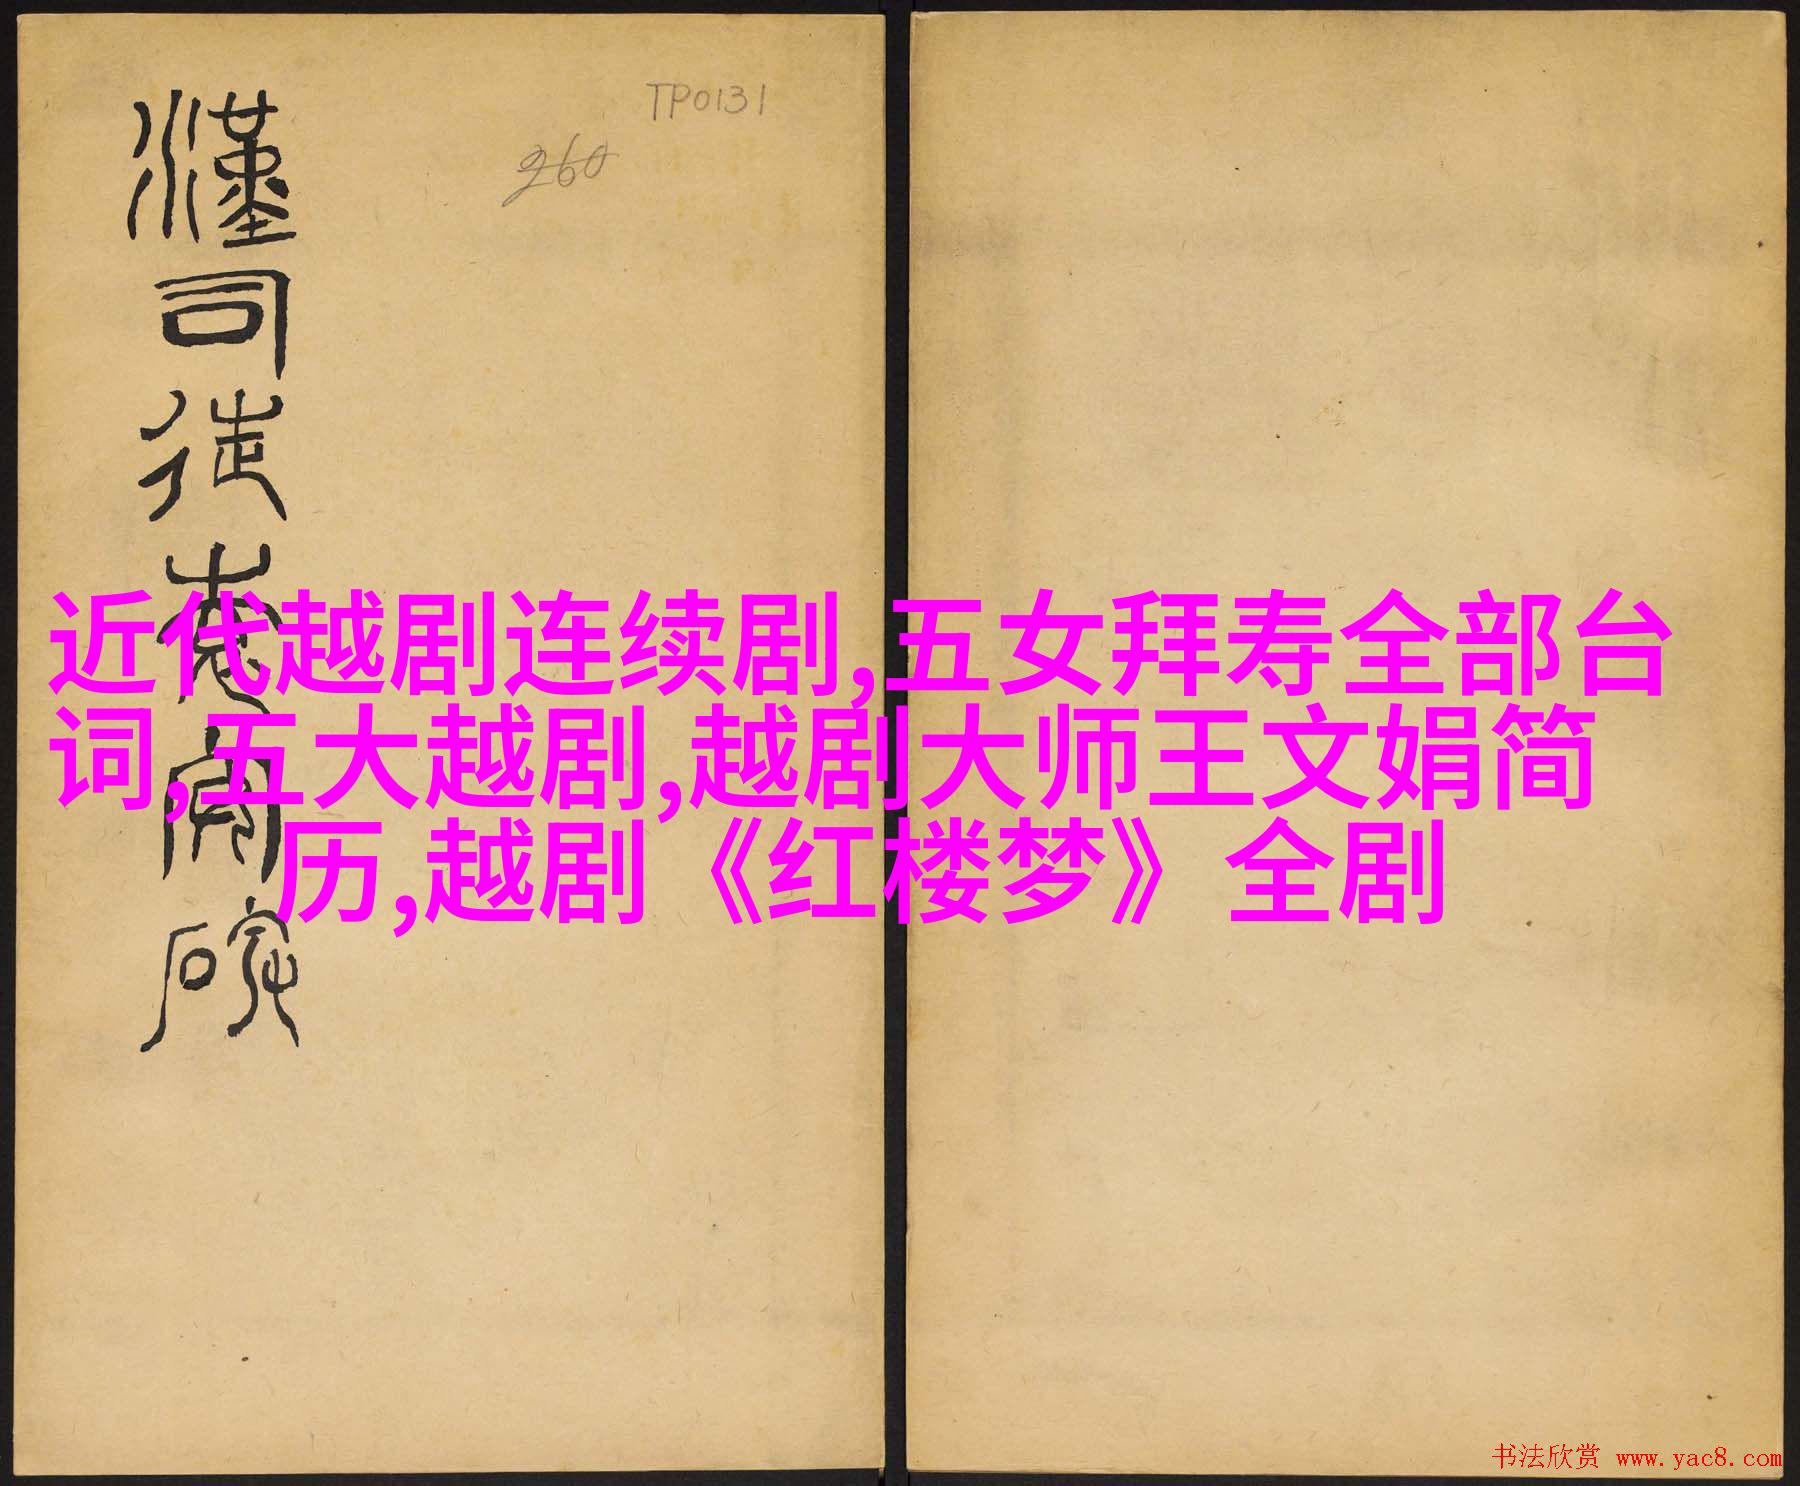 TP0131
260
漢司徒袁安碑
近代越剧连续剧,五女拜寿全部台
词,五大越剧,越剧大师王文娟简
历,越剧《红楼梦》全剧
书法欣赏 www.yac8.com